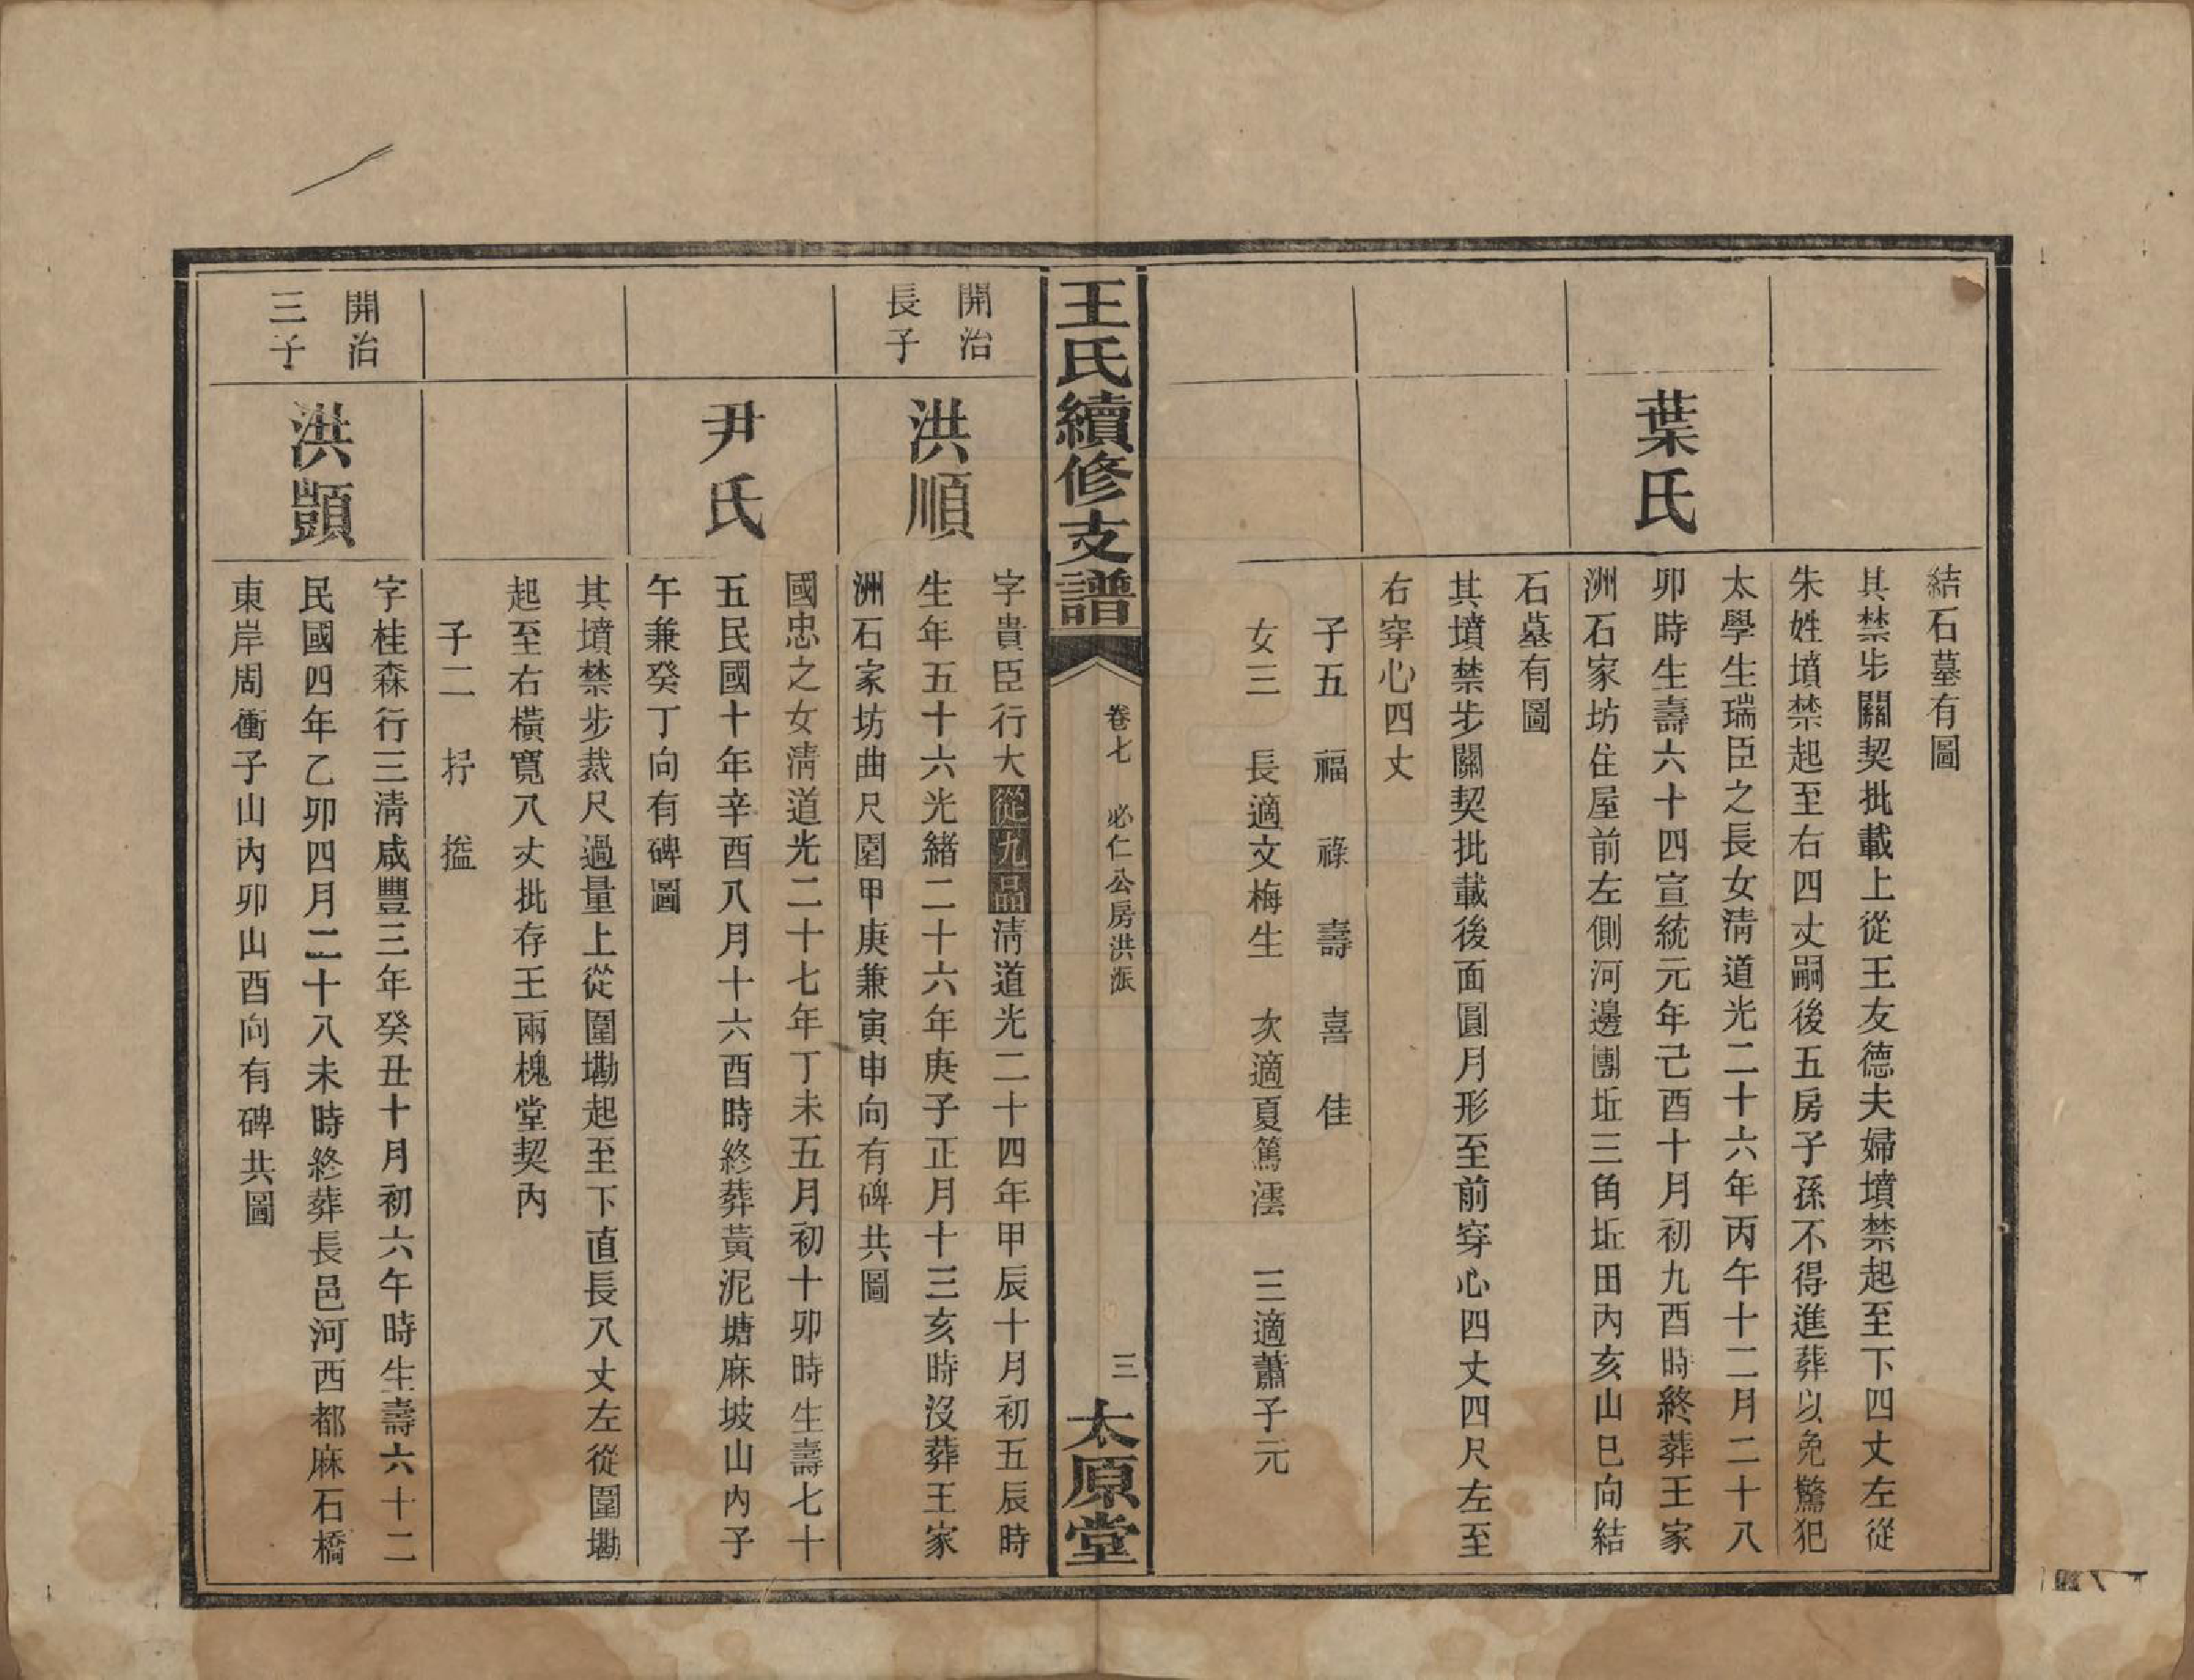 結石墓有圖
其禁步關契批載上從王友德夫婦墳禁起至下四丈左從
朱姓墳禁起至右四丈嗣後五房子孫不得進葬以免驚犯
葉氏
太學生瑞臣之長女清道光二十六年丙午十二月二十八
卯時生壽六十四宣統元年己酉十月初九酉時終葬王家
洲石家坊住屋前左側河邊團坵三角坵田內亥山巳向結
石墓有圖
其墳禁步關契批載後面圓月形至前穿心四丈四尺左至
右穿心四丈
子五 福 祿 壽 喜 佳
女三 長適文梅生 次適夏篤澐 三適蕭子元
王氏續修支譜
卷七 必仁公房洪派
三
太原堂
開治
長子
洪順
字貴臣行大從九品清道光二十四年甲辰十月初五辰時
生年五十六光緒二十六年庚子正月十三亥時沒葬王家
洲石家坊曲尺園甲庚兼寅申向有碑共圖
尹氏
國忠之女清道光二十七年丁未五月初十卯時生壽七十
五民國十年辛酉八月十六酉時終葬黃泥塘麻坡山內子
午兼癸丁向有碑圖
其墳禁步裁尺過量上從圍墈起至下直長八丈左從圍墈
起至右橫寬八丈批存王兩槐堂契內
子二 抒 㨒
開治
三子
洪顗
字桂森行三清咸豐三年癸丑十月初六午時生壽六十二
民國四年乙卯四月二十八未時終葬長邑河西都麻石橋
東岸周衝子山內卯山酉向有碑共圖